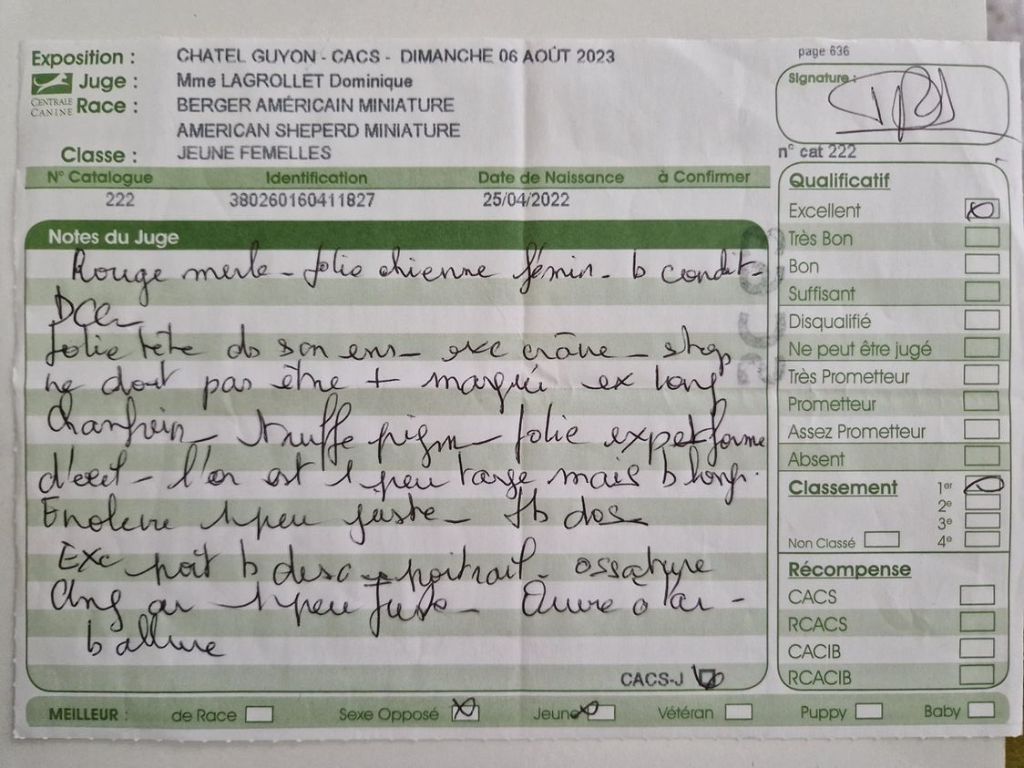 Exposition : CHATEL GUYON - CACS - DIMANCHE 06 AOÛT 2023
page 636
Juge : Mme LAGROLLET Dominique
Signature :
CENTRALE CANINE
Race : BERGER AMÉRICAIN MINIATURE
AMERICAN SHEPERD MINIATURE
Classe : JEUNE FEMELLES
n° cat 222
N° Catalogue Identification Date de Naissance à Confirmer
222 380260160411827 25/04/2022
Notes du Juge
Rouge merle - jolie chienne fémin - b condit -
DCC
Jolie tête ds son ens - exc crâne - stop
ne doit pas être + marqué ex long
Chanfrein - truffe pigm - jolie exp et forme
d'oeil - l'or est 1 peu large mais b long.
Encolure 1 peu juste - tb dos
Exc port b desc - poitrail - ossature
Ang av 1 peu juste - Ouvre o ar -
b allure
CACS-J
Qualificatif
Excellent
Très Bon
Bon
Suffisant
Disqualifié
Ne peut être jugé
Très Prometteur
Prometteur
Assez Prometteur
Absent
Classement 1er
2e
3e
Non Classé 4e
Récompense
CACS
RCACS
CACIB
RCACIB
MEILLEUR : de Race Sexe Opposé Jeune Vétéran Puppy Baby